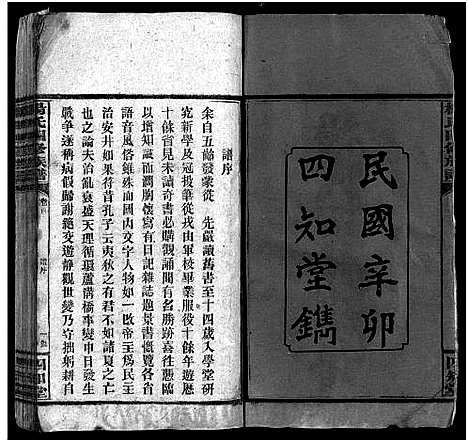 民國辛卯
四知堂鐫
譜序
余自五齡發蒙從　先嚴讀舊書至十四歲入學堂研
究新學及冠投筆從戎由軍校畢業服役十餘年遊歷
十餘省見未讀奇書必購觀誦聞有名勝跡喜往憩臨
以增知識而濶胸懷寫有日記雜誌題景書慨覽各省
語音風俗雖殊而國內文字人物如一改帝王爲民主
治安井如果符孔子云夷狄之有君不如諸夏之亡
也之論夫治亂衰盛天理循環蘆溝橋事變中日發生
戰爭遂稱病假歸謝絕交遊靜觀世變乃守拙躬耕自
楊氏四修族譜
譜序
四知堂